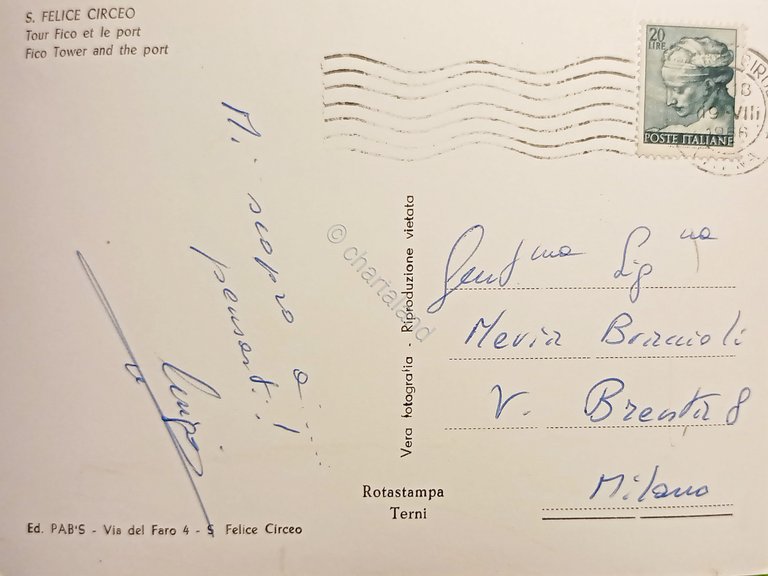 S. FELICE CIRCEO
Tour Fico et le port
Fico Tower and the port
20
LIRE
POSTE ITALIANE
19 VIII
Mi scopro a.....
pensarti..!
Luigi
© chartaland
Vera fotografia - Riproduzione vietata
Gent.ma Sig.na
V. Brenta 8
Milano
Rotastampa
Terni
Ed. PAB'S - Via del Faro 4 - S. Felice Circeo